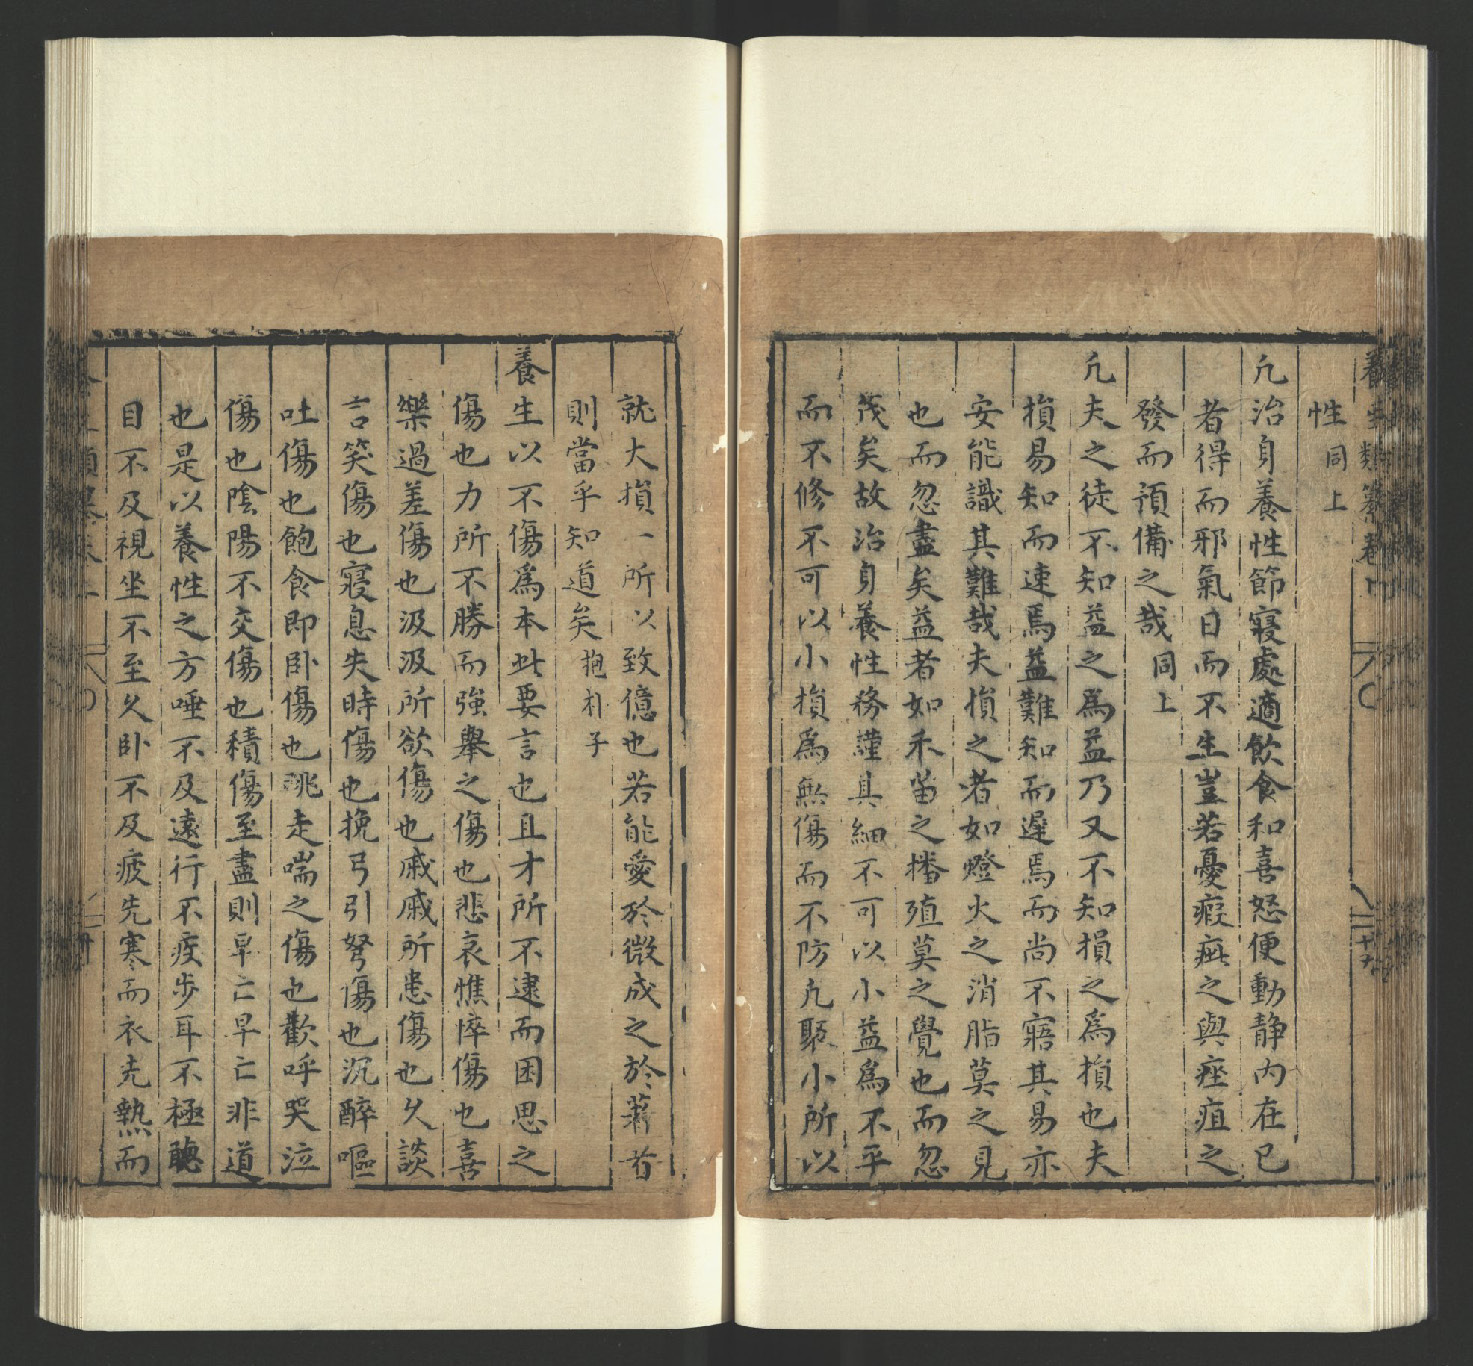 性同上
凢治身養性節寢處適飲食和喜怒便動静內在已
者得而邪氣日而不生豈若憂瘕疵之與痤疽之
發而預備之哉同上
凢夫之徒不知益之為益乃又不知損之為損也夫
損易知而速焉益難知而遲焉而尚不寤其易亦
安能識其難哉夫損之者如燈火之消脂莫之見
也而忽盡矣益者如禾苗之播殖莫之覺也而忽
茂矣故治身養性務謹其細不可以小益為不平
而不修不可以小損為無傷而不防凢聚小所以
就大損一所以致億也若能愛於微成之於著者
則當乎知道矣抱朴子
養生以不傷為本此要言也且才所不逮而困思之
傷也力所不勝而強舉之傷也悲哀憔悴傷也喜
樂過差傷也汲汲所欲傷也戚戚所患傷也乆談
言笑傷也寢息失時傷也挽弓引弩傷也沉醉嘔
吐傷也飽食即卧傷也跳走喘之傷也歡呼哭泣
傷也陰陽不交傷也積傷至盡則早亡早亡非道
也是以養性之方唾不及遠行不疾步耳不極聴
目不及視坐不至乆卧不及疲先寒而衣先熱而